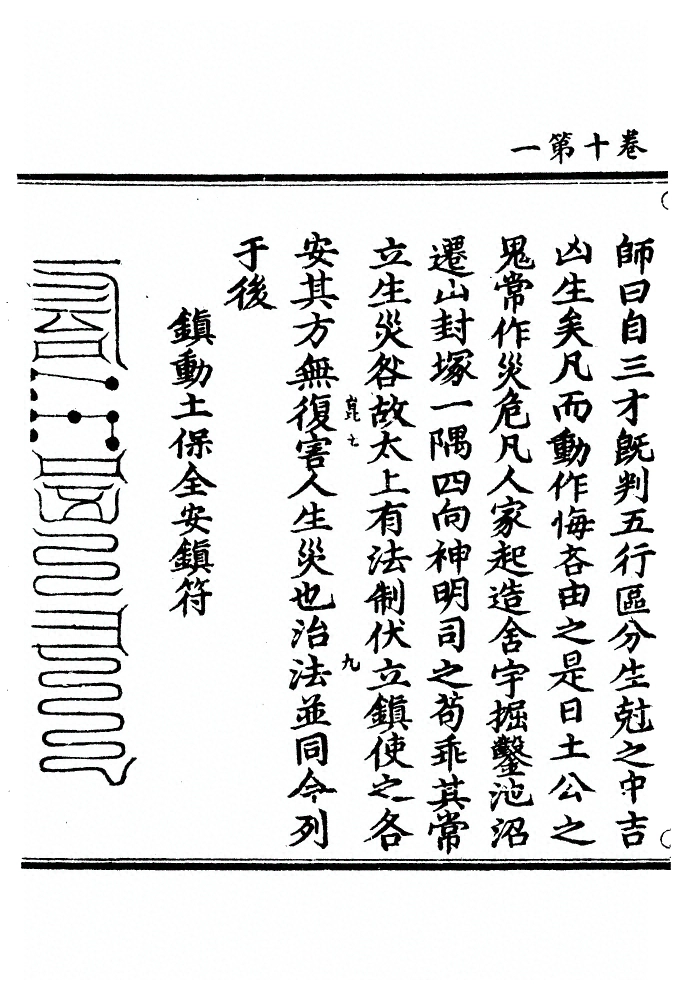 卷十第一
師曰自三才旣判五行區分生尅之中吉
凶生矣凡而動作悔吝由之是日土公之
鬼常作災危凡人家起造舍宇掘鑿池沼
遷山封塚一隅四向神明司之苟乖其常
立生災咎故太上有法制伏立鎮使之各
崑七 九
安其方無復害人生災也治法並同今列
于後
鎮動土保全安鎮符